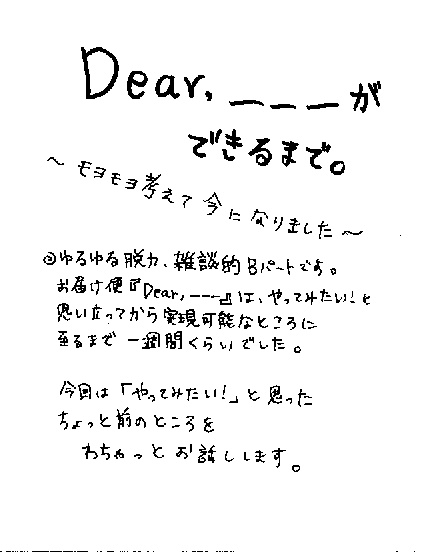 Dear, ＿＿＿が
できるまで。
～ モヨモヨ考えて 今になりました ～
⊙ゆるゆる脱力、雑談的Bパートです。
お届け便『Dear, ＿＿＿』は、やってみたい！と
思い立ってから実現可能なところに
至るまで 一週間くらいでした。
今回は「やってみたい！」と思った
ちょっと前のところを
わちゃっと お話しします。